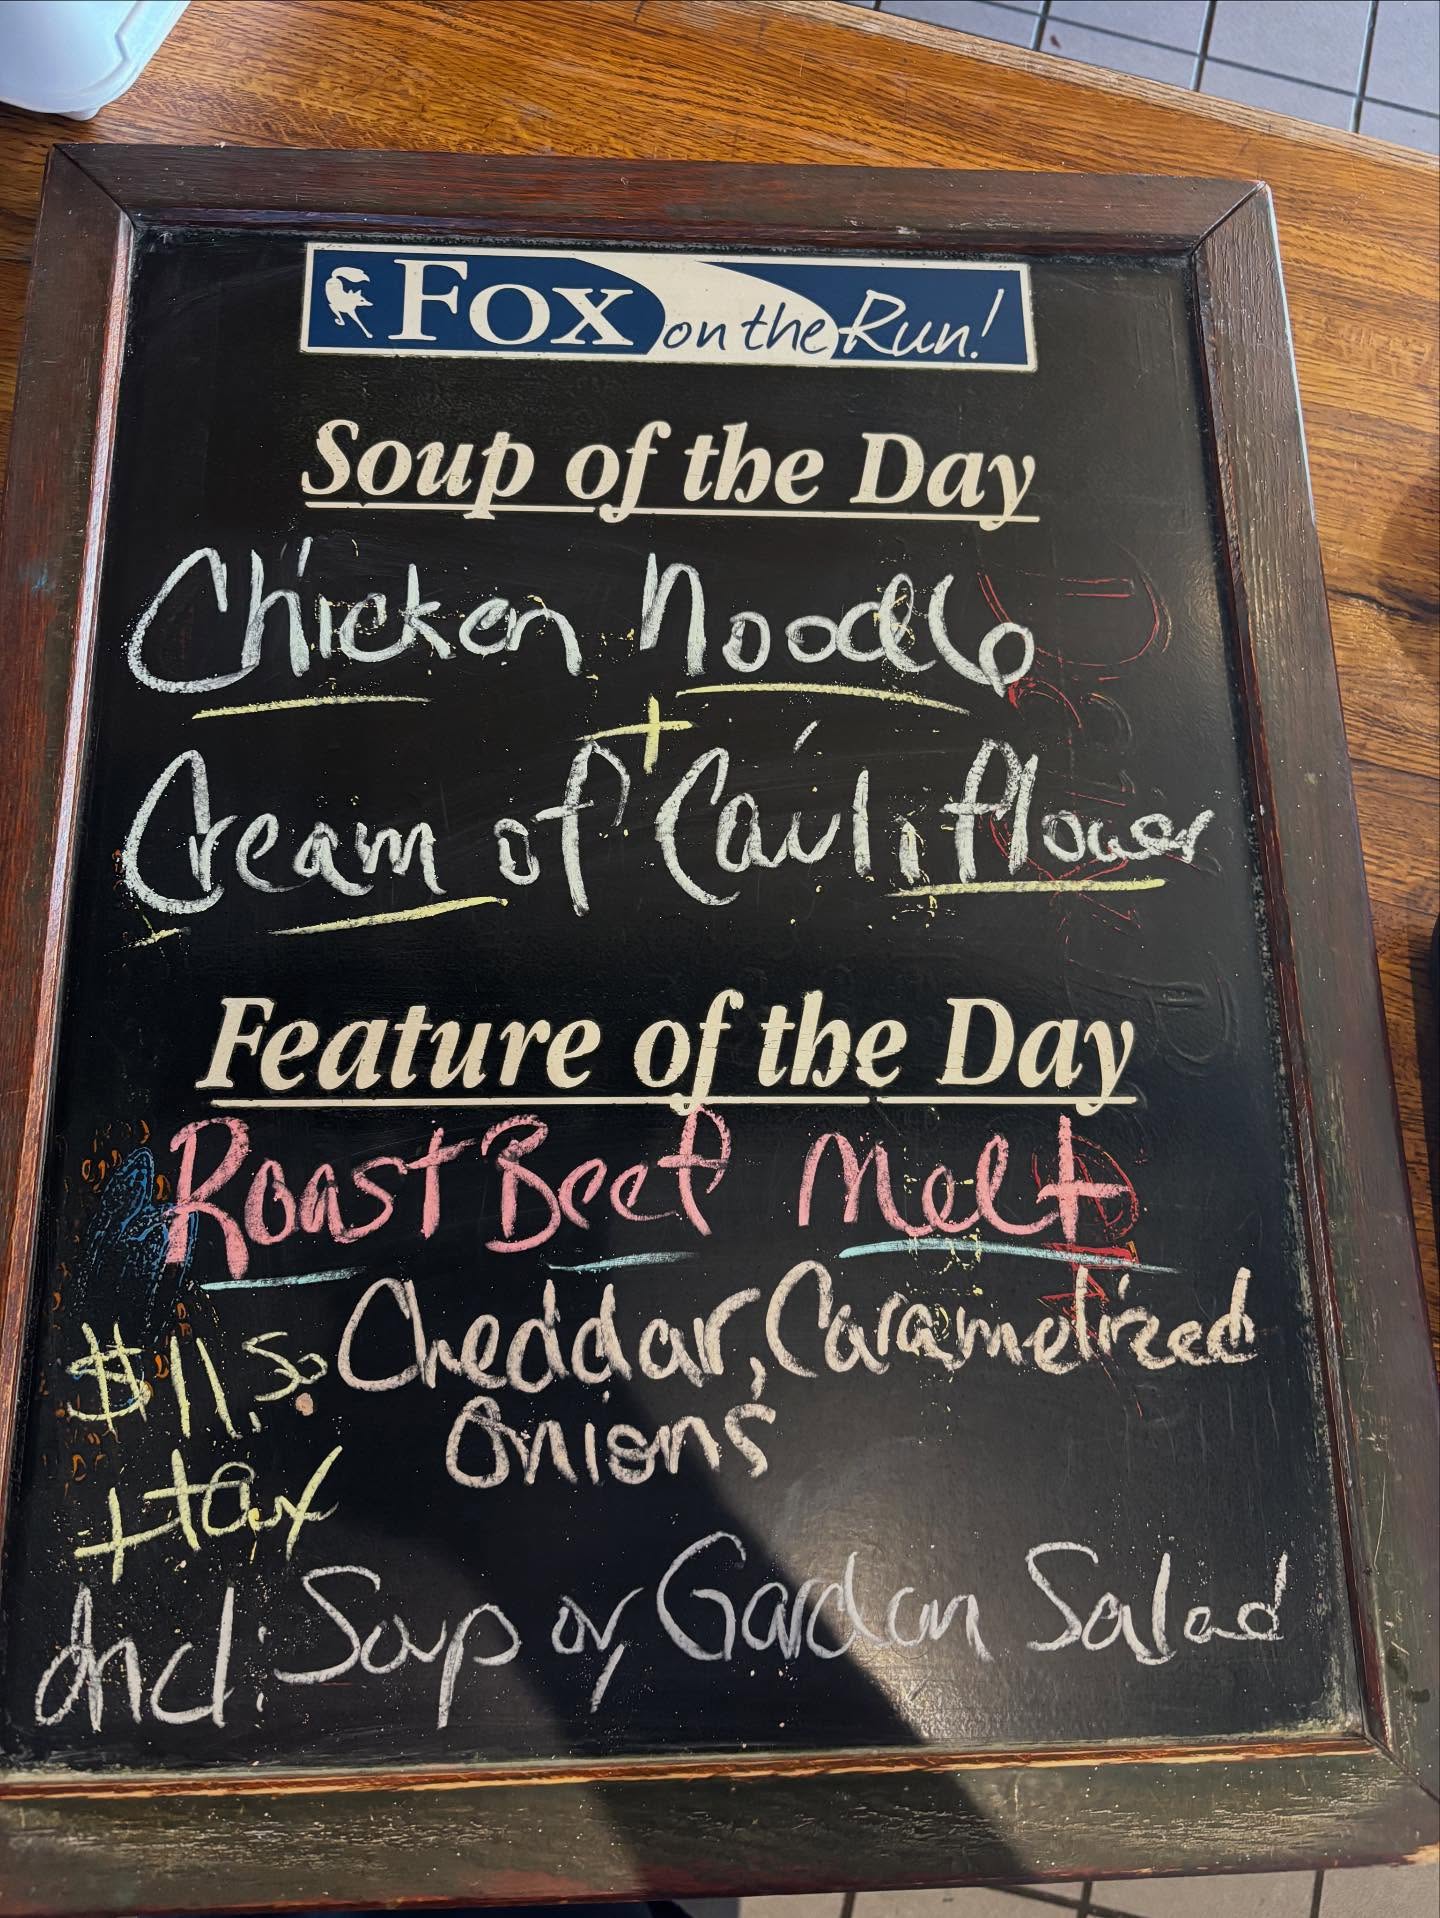 Fox on the Run!
Soup of the Day
Chicken Noodle
+
Cream of Cauliflower
Feature of the Day
Roast Beef Melt
$11.50 Cheddar, Caramelized
Onions
+tax
Incl: Soup or Garden Salad